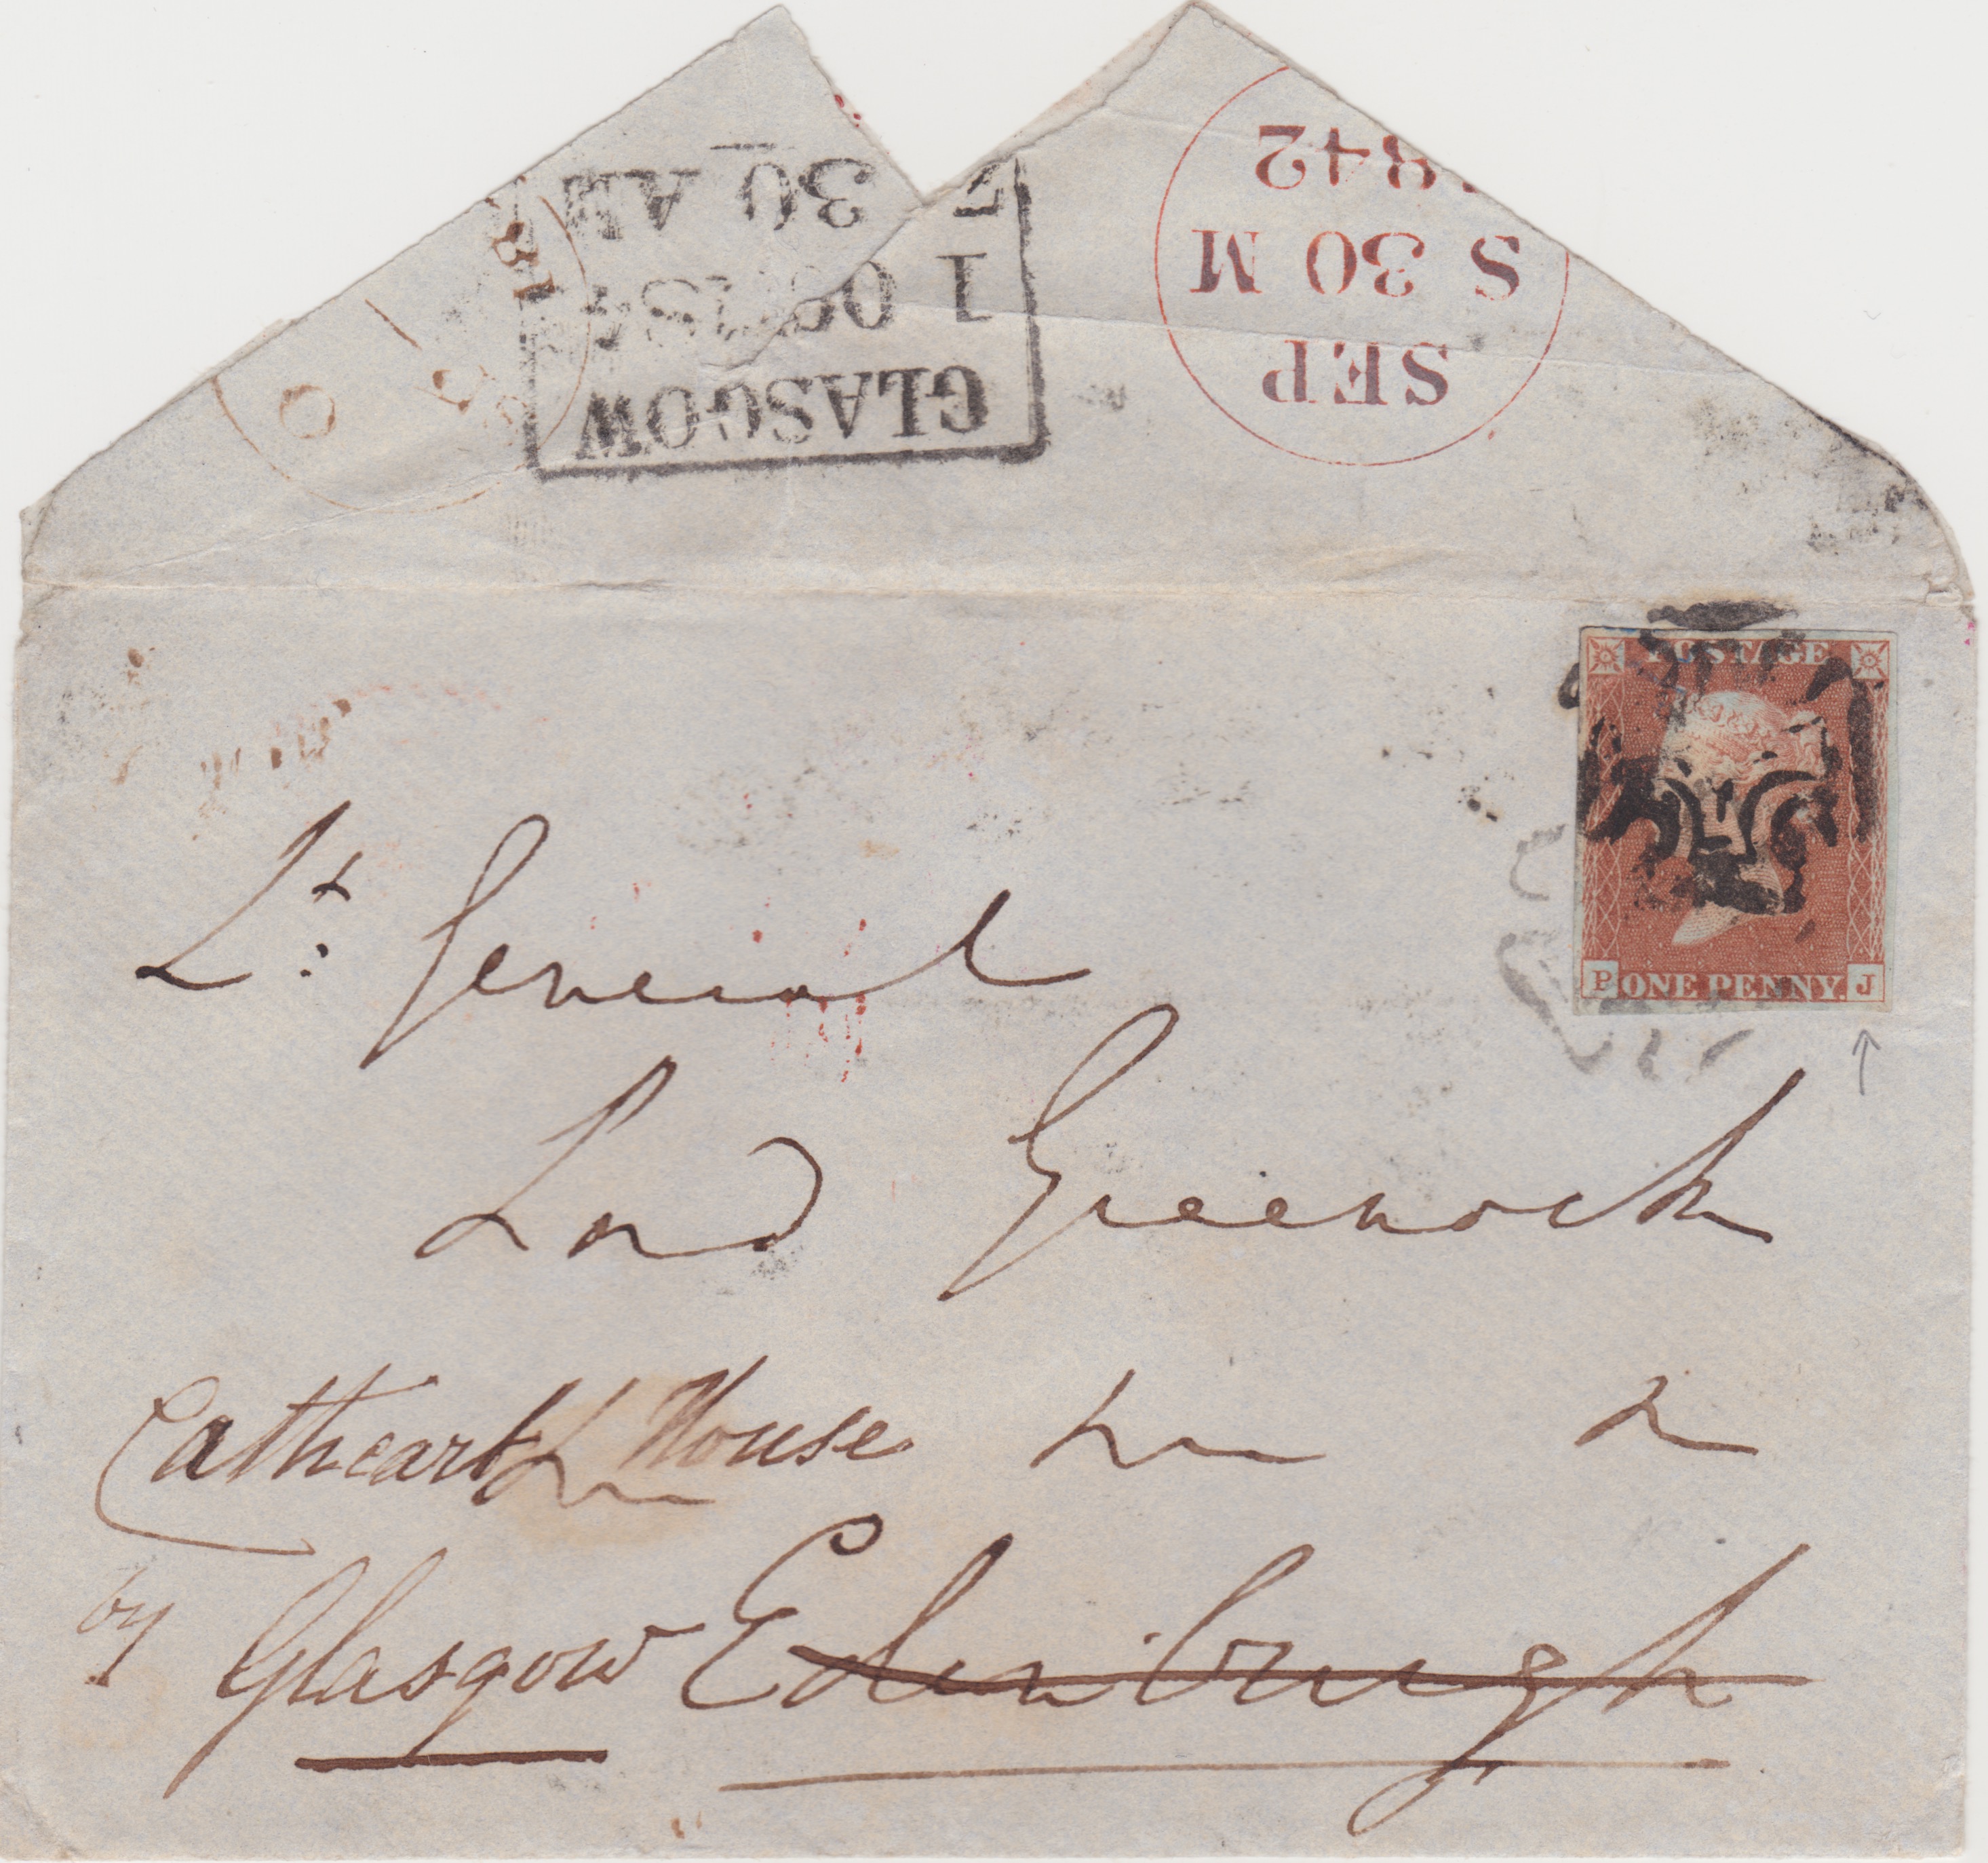 1842
S 30 M
SEP
30 AM
1 OC 184
GLASGOW
POSTAGE
P ONE PENNY. J
Lt. General
Lord Greenock
Cathcart House
by Glasgow Edinburgh